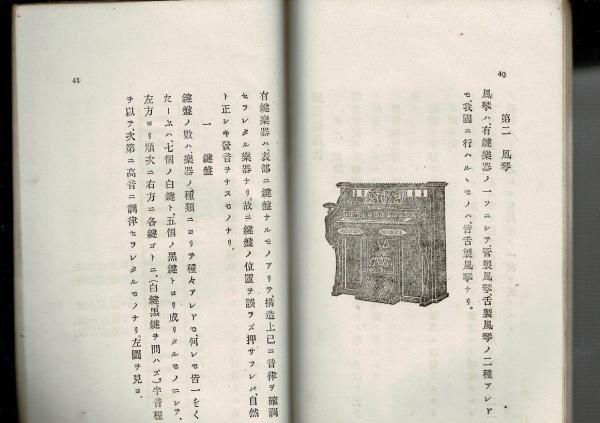 40
第二 風琴
風琴ハ、有鍵樂器ノ一ツニシテ、管製風琴、舌製風琴ノ二種アレド
モ、我國ニ行ハルヽモノハ、舌製風琴ナリ。
有鍵樂器ハ、表部ニ鍵盤ナルモノアリテ、構造上已ニ音律ヲ確調
セラレタル樂器ナリ、故ニ鍵盤ノ位置ヲ誤ラズ押サフレバ、自然
ト正シキ發音ヲナスモノナリ。
一 鍵盤
鍵盤ノ數ハ、樂器ノ種類ニヨリテ種々アレドモ、何レモ皆一をく
たーぶハ、七個ノ白鍵ト、五個ノ黒鍵トヨリ成リタルモノニシテ、
左方ヨリ順次ニ右方ニ各鍵ゴトニ、(白鍵、黒鍵ヲ問ハズ、)半音程
ヲ以テ、次第ニ高音ニ調律セラレタルモノナリ、左圖ヲ見ヨ。
41